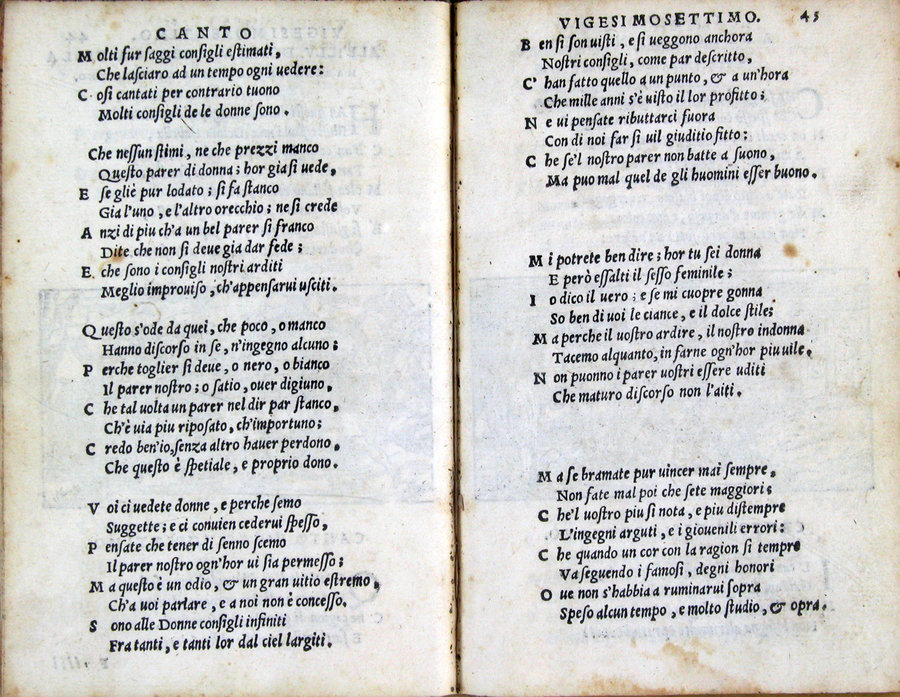 CANTO
Molti fur saggi consigli estimati,
Che lasciaro ad un tempo ogni uedere:
Cosi cantati per contrario tuono
Molti consigli de le donne sono.
Che nessun stimi, ne che prezzi manco
Questo parer di donna; hor gia si uede,
E se gliè pur lodato; si fa stanco
Gia l'uno, e l'altro orecchio; ne si crede
Anzi di piu ch'a un bel parer si franco
Dite che non si deue gia dar fede;
E che sono i consigli nostri arditi
Meglio improuiso, ch'appensarui usciti.
Questo s'ode da quei, che poco, o manco
Hanno discorso in se, n'ingegno alcuno;
Perche toglier si deue, o nero, o bianco
Il parer nostro; o satio, ouer digiuno,
Che tal uolta un parer nel dir par stanco,
Ch'è uia piu riposato, ch'importuno;
Credo ben'io, senza altro hauer perdono,
Che questo è spetiale, e proprio dono.
Voi ci uedete donne, e perche semo
Suggette; e ci conuien cederui spesso,
Pensate che tener di senno scemo
Il parer nostro ogn'hor ui sia permesso;
Ma questo è un odio, & un gran uitio estremo,
Ch'a uoi parlare, e a noi non è concesso.
Sono alle Donne consigli infiniti
Fra tanti, e tanti lor dal ciel largiti.
VIGESIMOSETTIMO. 45
Ben si son uisti, e si ueggono anchora
Nostri consigli, come par descritto,
C'han fatto quello a un punto, & a un'hora
Che mille anni s'è uisto il lor profitto;
Ne ui pensate ributtarci fuora
Con di noi far si uil giuditio fitto;
Che se'l nostro parer non batte a suono,
Ma puo mal quel de gli huomini esser buono.
Mi potrete ben dire; hor tu sei donna
E però essalti il sesso feminile;
Io dico il uero; e se mi cuopre gonna
So ben di uoi le ciance, e il dolce stile;
Ma perche il uostro ardire, il nostro indonna
Tacemo alquanto, in farne ogn'hor piu uile,
Non puonno i parer uostri essere uditi
Che maturo discorso non l'aiti.
Ma se bramate pur uincer mai sempre,
Non fate mal poi che sete maggiori;
Che'l uostro piu si nota, e piu distempre
L'ingegni arguti, e i giouenili errori:
Che quando un cor con la ragion si tempre
Va seguendo i famosi, degni honori
Oue non s'habbia a ruminarui sopra
Speso alcun tempo, e molto studio, & opra.